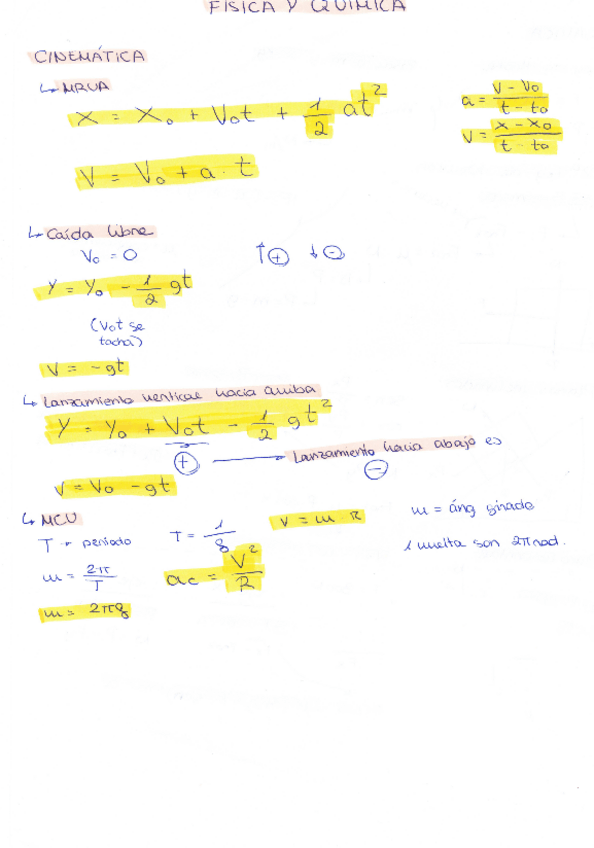 FÍSICA Y QUÍMICA
CINEMÁTICA
↳ MRUA
X = X₀ + V₀t + 1/2 at²
a = (V - V₀)/(t - t₀)
V = (x - x₀)/(t - t₀)
V = V₀ + a · t
↳ Caída libre
V₀ = 0
↑⊕ ↓⊖
Y = Y₀ - 1/2 gt
(V₀t se
tacha)
V = -gt
↳ Lanzamiento vertical hacia arriba
Y = Y₀ + V₀t - 1/2 gt²
⊕ → Lanzamiento hacia abajo es
⊖
V = V₀ - gt
↳ MCU
T → periodo
T = 1/f
V = ω · R
ω = áng girado
1 vuelta son 2π rad.
ω = 2π/T
ac = V²/R
ω = 2πf